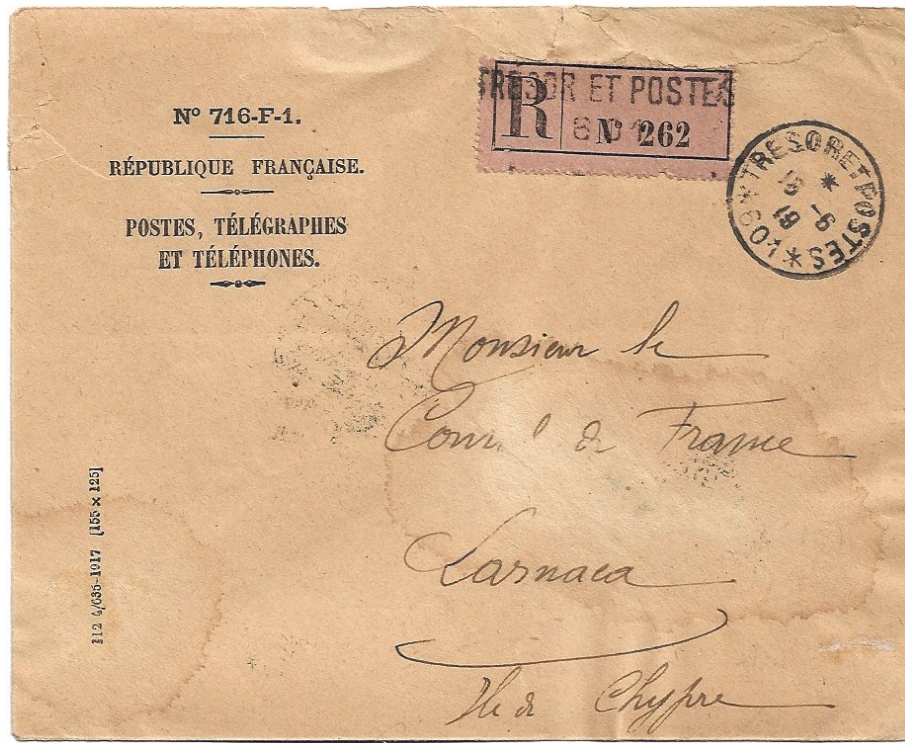 N° 716-F-1.
RÉPUBLIQUE FRANÇAISE.
POSTES, TÉLÉGRAPHES
ET TÉLÉPHONES.
TRÉSOR ET POSTES
R N° 262
* TRESOR ET POSTES * 601
18 -6
19
Monsieur le
Consul de France
Larnaca
Ile de Chypre
112 4/035-1917 [155 × 125]